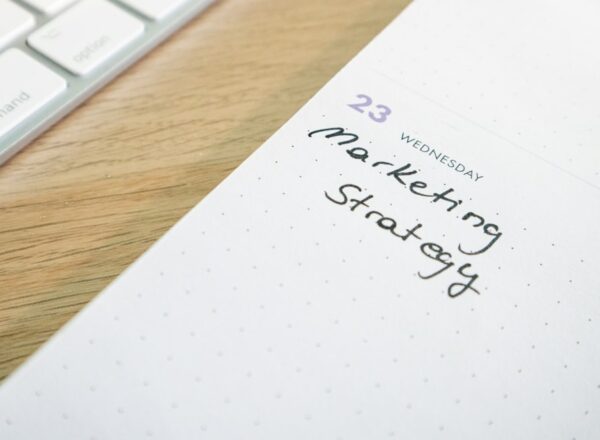 option
mand
23 WEDNESDAY
Marketing
Strategy